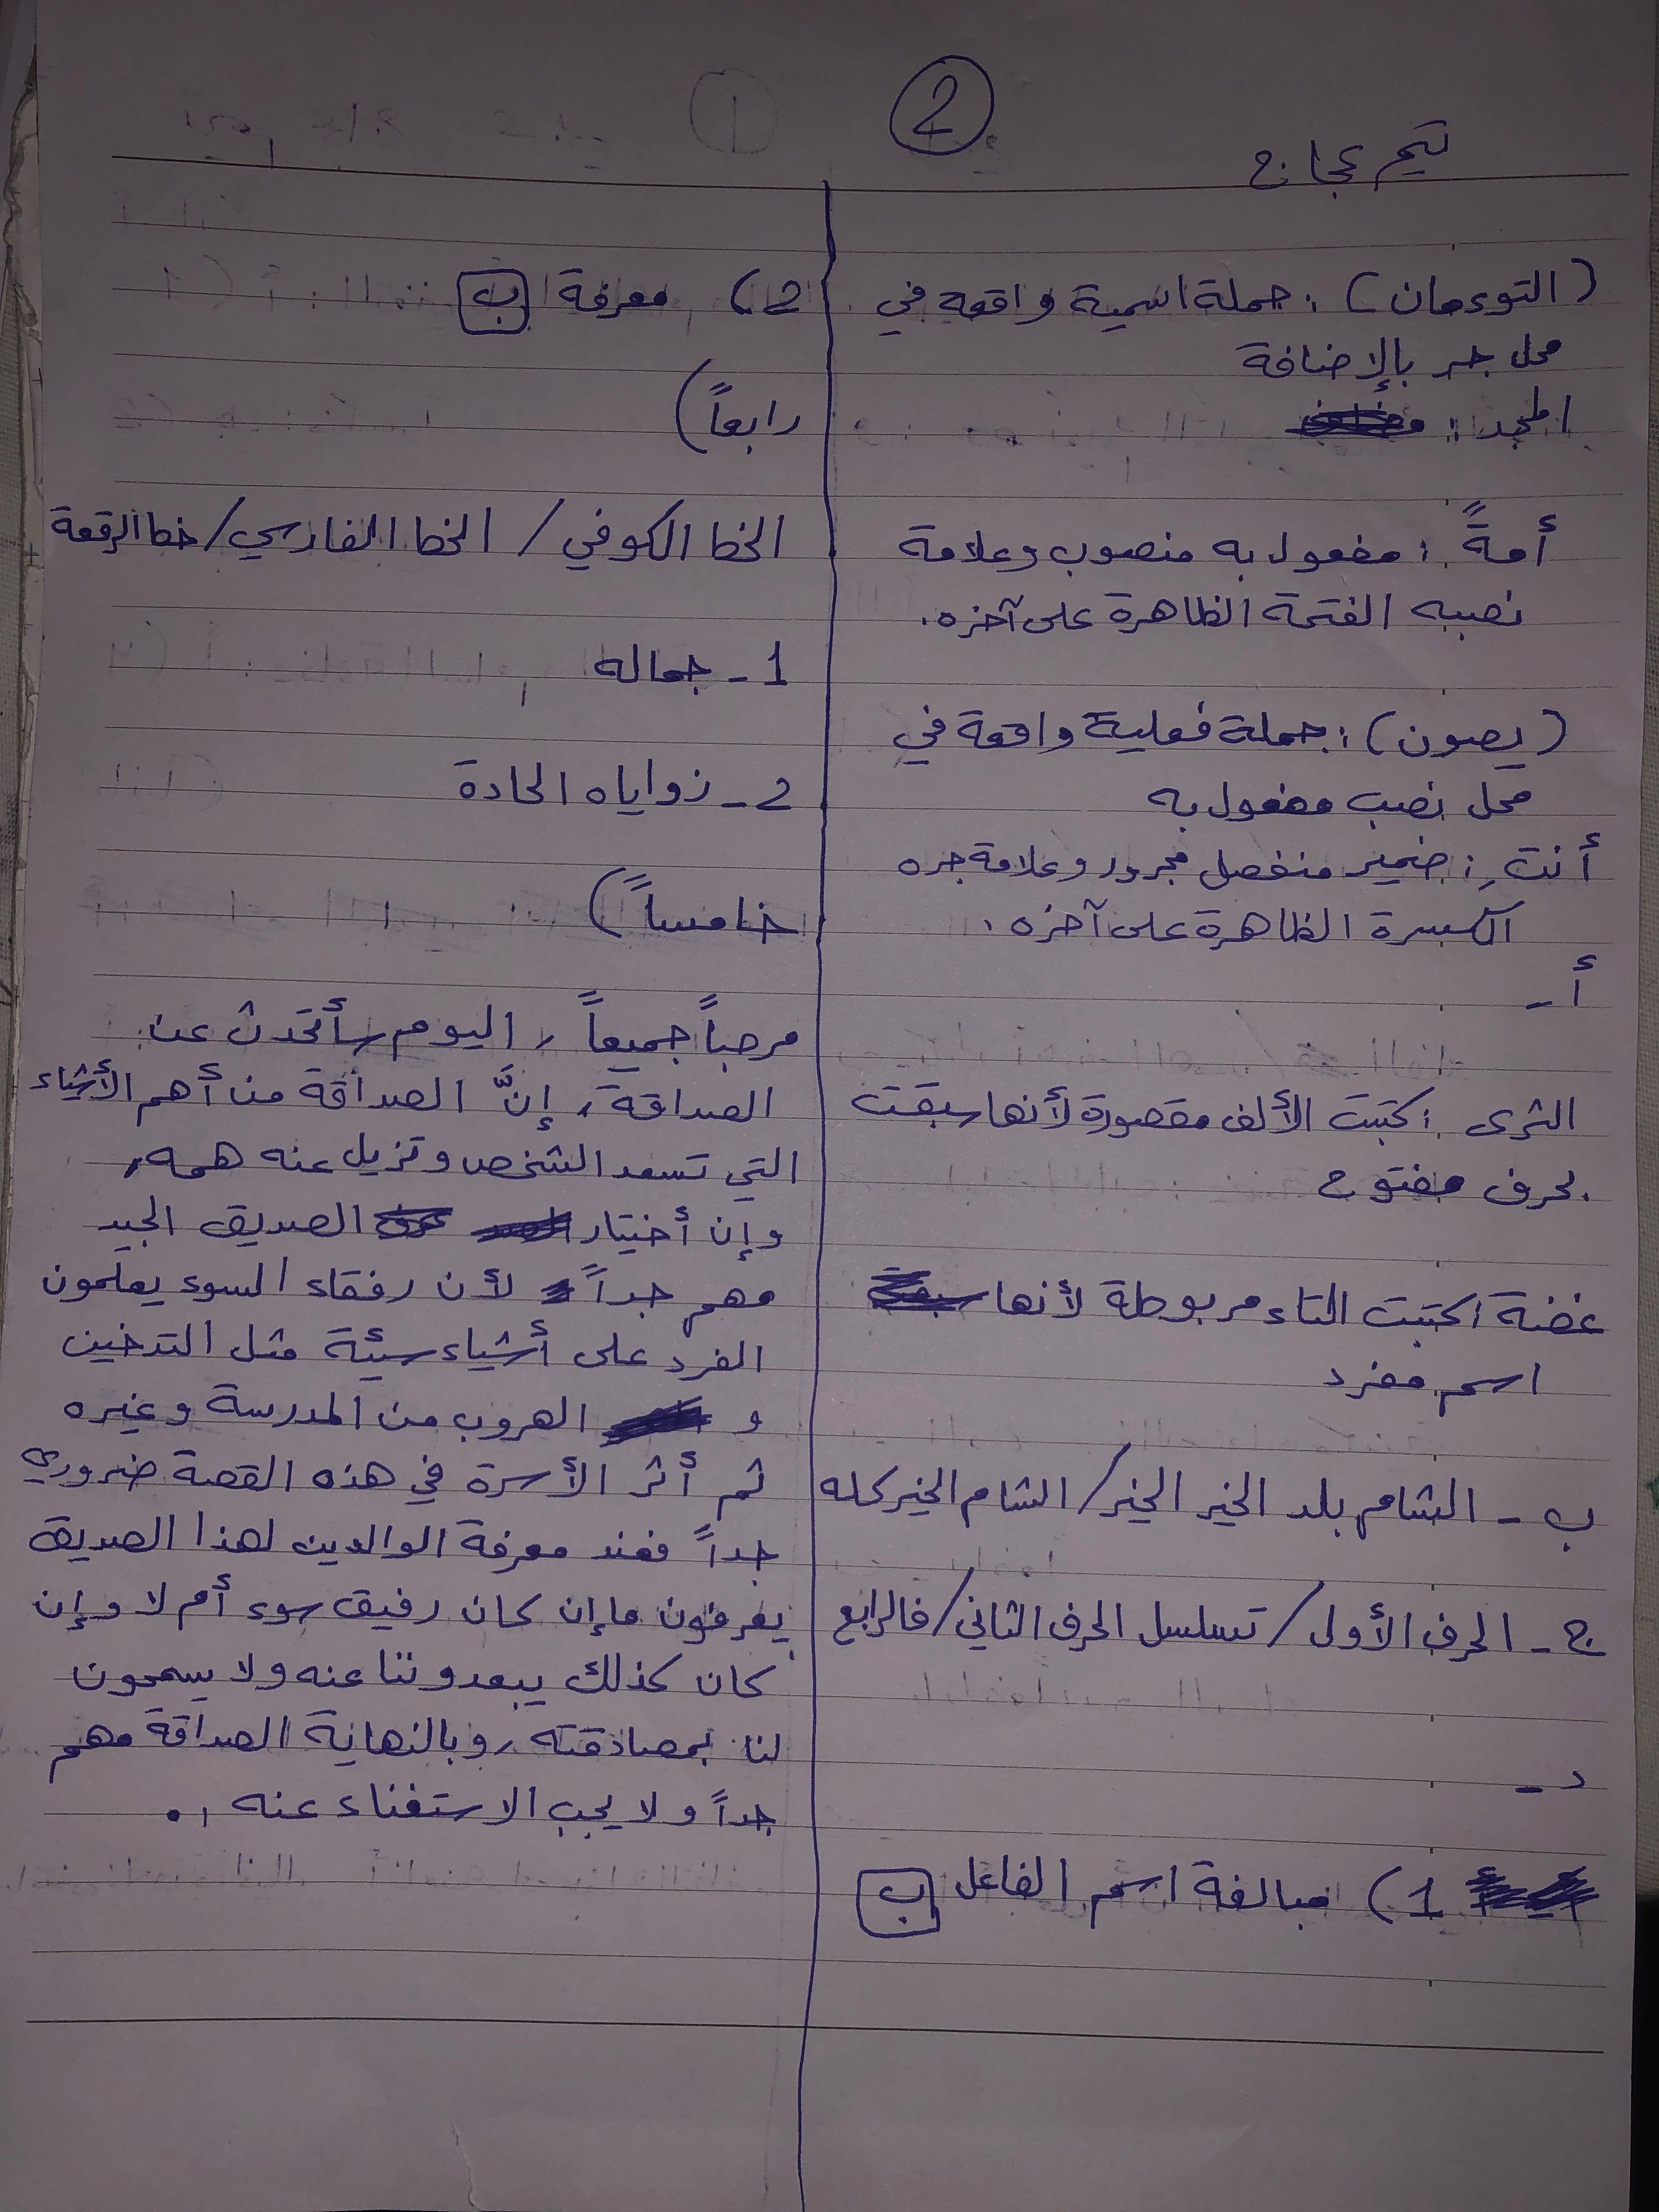 2
تيم عجاج
(التوءمان): جملة اسمية واقعة في
محل جر بالإضافة
المجد:
أمةً: مفعول به منصوب وعلامة
نصبه الفتحة الظاهرة على آخره.
(يصون): جملة فعلية واقعة في
محل نصب مفعول به
أنتِ: ضمير منفصل مجرور وعلامة جره
الكسرة الظاهرة على آخره.
أ-
الثرى: كتبت الألف مقصورة لأنها سبقت
بحرف مفتوح
غضة: كتبت التاء مربوطة لأنها
اسم مفرد
ب- الشام بلد الخير الخير/ الشام الخير كله
ج- الحرف الأول/ تسلسل الحرف الثاني/ فالرابع
د-
1) مبالغة اسم الفاعل ب
2) معرفة ب
رابعاً)
الخط الكوفي/ الخط الفارسي/ خط الرقعة
1- جماله
2- زواياه الحادة
خامساً)
مرحباً جميعاً, اليوم سأتحدث عن
الصداقة, إنَّ الصداقة من أهم الأشياء
التي تسعد الشخص وتزيل عنه همه,
وإن أختيار الصديق الجيد
مهم جداً لأن رفقاء السوء يعلمون
الفرد على أشياء سيئة مثل التدخين
و الهروب من المدرسة وغيره
ثم أثر الأسرة في هذه القصة ضروري
جداً فعند معرفة الوالدين لهذا الصديق
يعرفون ما إن كان رفيق سوء أم لا وإن
كان كذلك يبعدوننا عنه ولا يسمحون
لنا بمصادقته, وبالنهاية الصداقة مهم
جداً ولا يجب الاستغناء عنه.